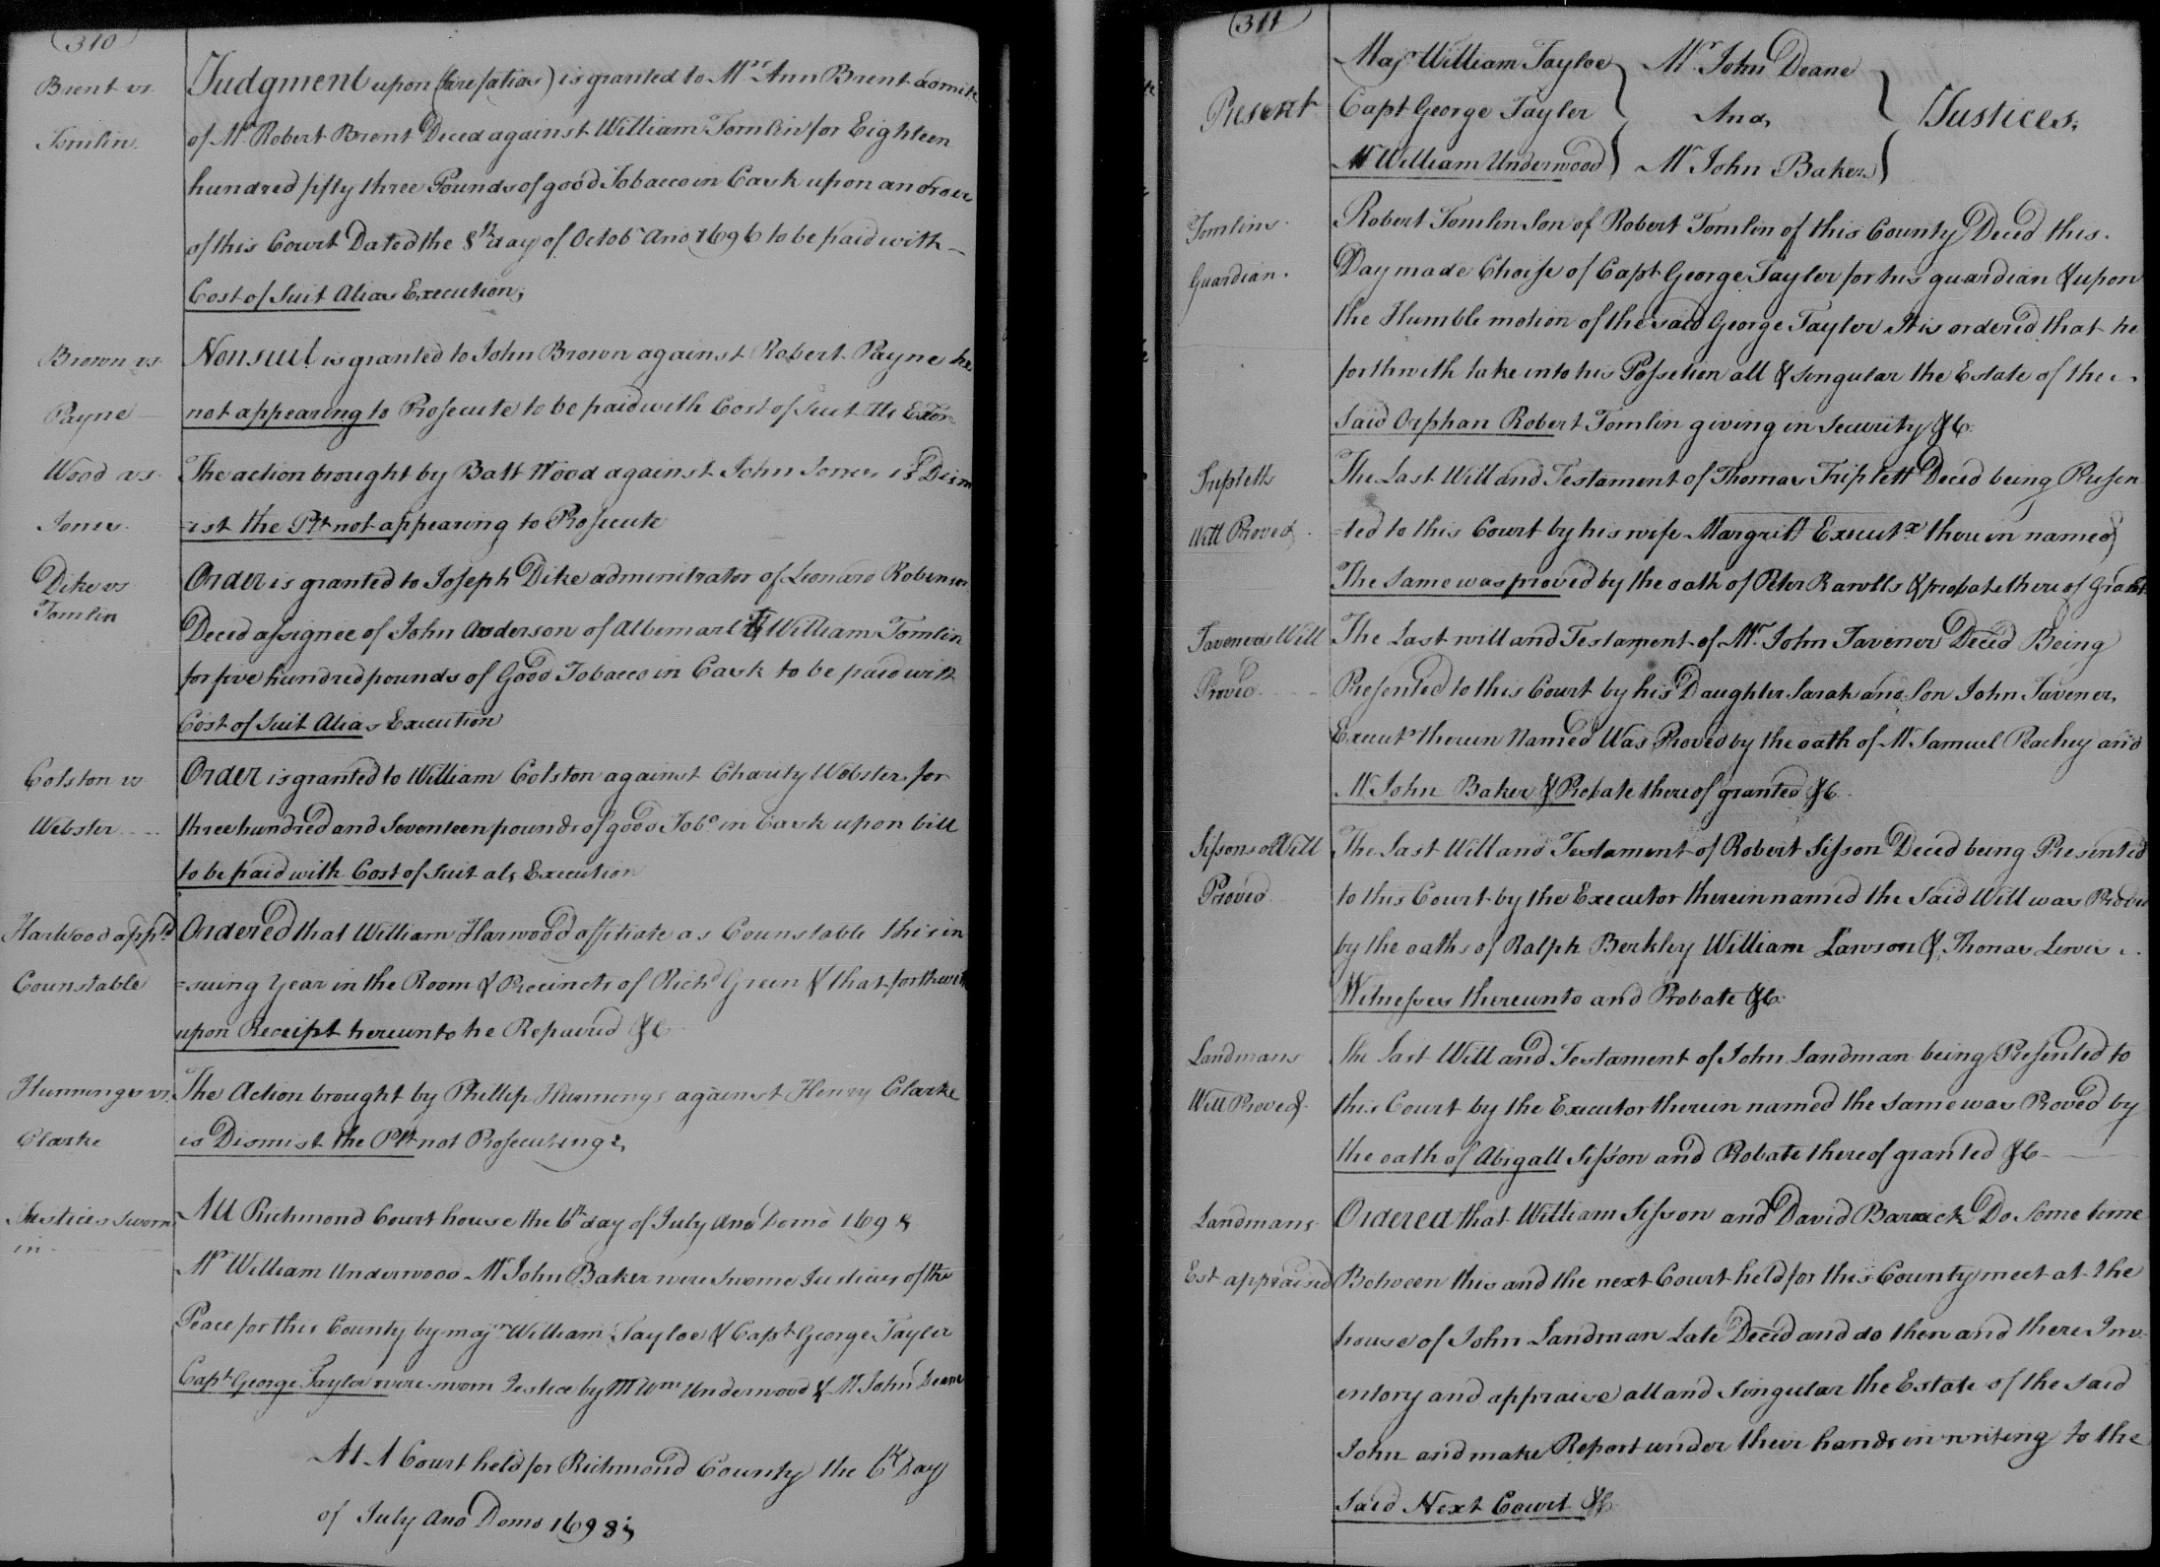 (310)
Brent vs
Tomlin.
Judgment upon (Sirefatias) is granted to Mrs Ann Brent admix
of Mr Robert Brent Deced against William Tomlin for Eighteen
hundred fifty three Pounds of good Tobacco in Cask upon an order
of this Court Dated the 8th day of Octobr Ano 1696 to be paid with
Cost of Suit Alias Execution;
Brown vs
Payne
Nonsuit is granted to John Brown against Robert Payne he
not appearing to Prosecute to be paid with Cost of Suit Als Exon
Wood vs
Jones.
The action brought by Batt Wood against John Jones is Dism
=ist the Plt not appearing to Prosecute
Dike vs
Tomlin
Order is granted to Joseph Dike adminitrator of Leonard Robinson
Deced assignee of John Anderson of Albemarl William Tomlin
for five hundred pounds of Good Tobacco in Cask to be paid with
Cost of Suit Alias Execution
Colston vs
Webster
Order is granted to William Colston against Charity Webster for
three hundred and Seventeen pounds of good Tobo in Cask upon bill
to be paid with Cost of Suit als Execution
Harwood appd
Counstable
Ordered that William Harwood officiate as Counstable this in
=suing Year in the Room & Precincts of Richd Green & that forthwith
upon Receipt hereunto he Repaired &c
Hunnings vs.
Clarke
The Action brought by Phillip Hunnings against Henry Clarke
is Dismist the Plt not Prosecuting
Justices Sworn
in
Att Richmond Court house the 6th day of July Ano Domo 1698
Mr William Underwood Mr John Baker were Sworne Justices of the
Peace for this County by majr William Tayloe & Capt George Taylor
Capt George Taylor were sworn Jestice by Mr Wm Underwood & Mr John Deane
At A Court held for Richmond County the 6th Day
of July Ano Domo 1698;
(311)
Present
Majr William Tayloe } Mr John Deane
Capt George Tayler } And } Justices.
Mr William Underwood } Mr John Baker
Tomlins
Guardian.
Robert Tomlin Son of Robert Tomlin of this County Deced this
Day made Choise of Capt George Tayler for his guardian & upon
the Humble motion of the said George Tayler It is ordered that he
forthwith take into his Possetion all & Singular the Estate of the
Said Orphan Robert Tomlin giving in Security &c.
Tripletts
Will Proved
The Last Will and Testament of Thomas Triplett Deced being Presen
=ted to this Court by his wife Margritt Executx there in named
The Same was proved by the oath of Peter Rawlls & probate there of Grant
Taveners Will
Proved
The Last will and Testament of Mr John Tavener Deced Being
Presented to this Court by his Daughter Sarah and Son John Tavener
Executs therein Named Was Proved by the oath of Mr Samuel Rachey and
Mr John Baker & Probate there of granted &c
Sissons Will
Proved
The Last Will and Testament of Robert Sisson Deced being Presented
to this Court by the Executor therein named the Said Will was Proved
by the oaths of Ralph Berkley William Lawson & Thomas Lewis
Witnesses thereunto and Probate &c
Landmans
Will Proved
The Last Will and Testament of John Landman being Presented to
this Court by the Executor therein named the Same was Proved by
the oath of Abigall Sisson and Robate there of granted &c
Landmans
Est appraised
Ordered that William Sisson and David Barrick Do Some time
Between this and the next Court held for this County meet at the
house of John Landman Late Deced and do then and there Inv
entory and appraise all and Singular the Estate of the Said
John and make Report under their hands in writing to the
Said Next Court &c